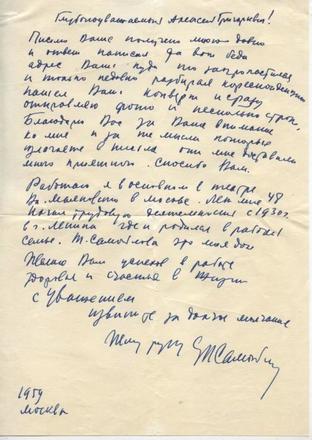 Глубокоуважаемый Алексей Григорьевич!
Письмо Ваше получено мною давно
и ответ написал да вот беда
адрес Ваш куда то запропастился
и только недавно разбирая корреспонденцию
нашел Ваш конверт и сразу
отправляю фото и несколько строк.
Благодарю Вас за Ваше внимание
ко мне и за те мысли которые
мне
много приятного. Спасибо Вам.
Работаю я в основном в театре
Вл. Маяковского в Москве. Лет мне 48
Начал трудовую деятельность с 1930г.
в г. Ленина где и родился в рабочей
семье. Т. Самойлова это моя дочь
Желаю Вам успехов в работе
здоровья и счастья в жизни
с уважением
извините за долгое молчание
Жму руку ЕСамойлов
1959
Москва